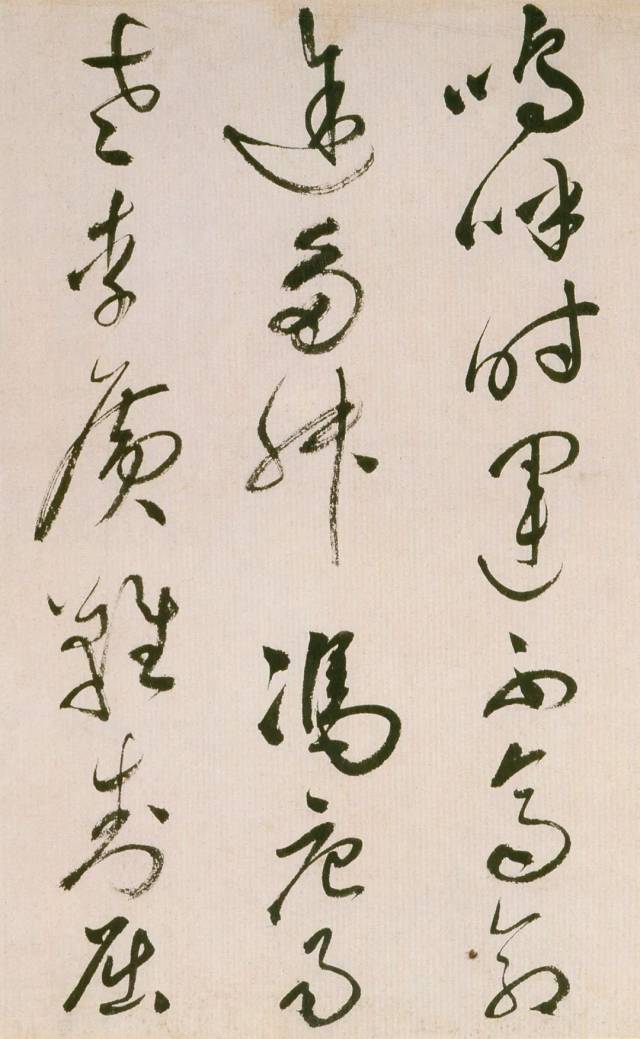 嗚呼時運不齊命
途多舛馮唐易
老李廣難封屈